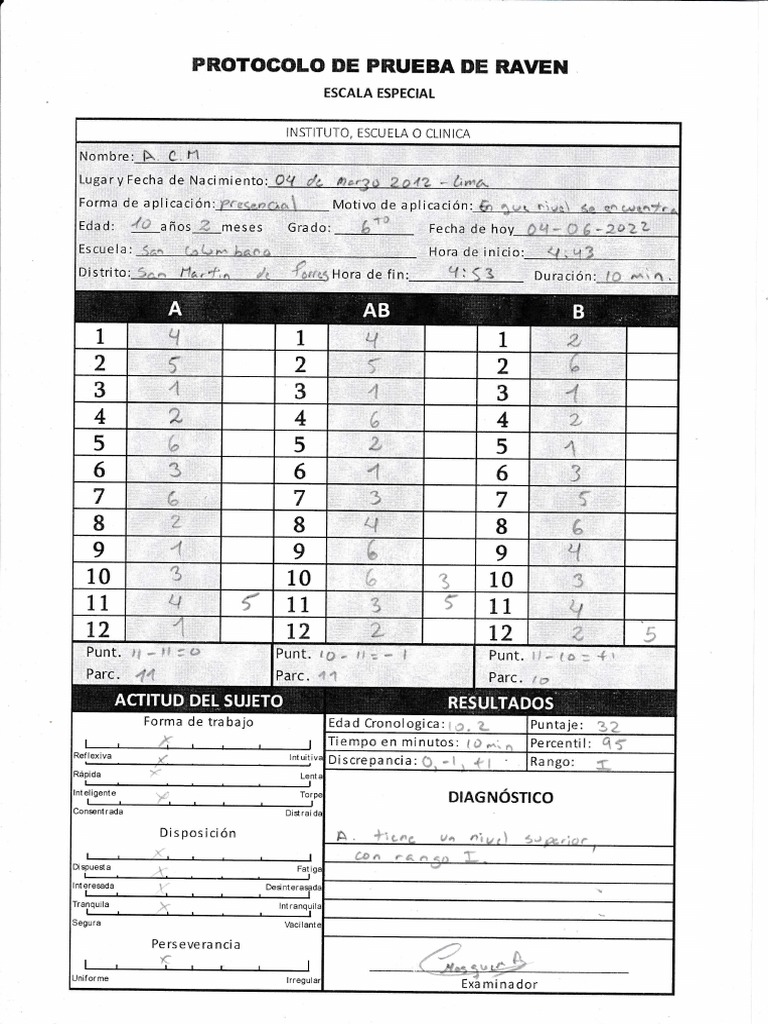 PROTOCOLO DE PRUEBA DE RAVEN
ESCALA ESPECIAL
INSTITUTO, ESCUELA O CLINICA
Nombre: A. C. M
Lugar y Fecha de Nacimiento: 04 de marzo 2012 - Lima
Forma de aplicación: presencial Motivo de aplicación: En que nivel se encuentra
Edad: 10 años 2 meses Grado: 6TO Fecha de hoy 04-06-2022
Escuela: San Columbano Hora de inicio: 4:43
Distrito: San Martin de Porres Hora de fin: 4:53 Duración: 10 min.
A AB B
1 4 1 4 1 2
2 5 2 5 2 6
3 1 3 1 3 1
4 2 4 6 4 2
5 6 5 2 5 1
6 3 6 1 6 3
7 6 7 3 7 5
8 2 8 4 8 6
9 1 9 6 9 4
10 3 10 6 3 10 3
11 4 5 11 3 5 11 4
12 1 12 2 12 2 5
Punt. 11-11=0 Punt. 10-11=-1 Punt. 11-10=+1
Parc. 11 Parc. 11 Parc. 10
ACTITUD DEL SUJETO RESULTADOS
Forma de trabajo Edad Cronologica: 10.2 Puntaje: 32
Tiempo en minutos: 10min Percentil: 95
Reflexiva Intuitiva Discrepancia: 0, -1, +1 Rango: I
Rápida Lenta
Inteligente Torpe
Consentrada Distraida
DIAGNÓSTICO
A. tiene un nivel superior,
con rango I.
Disposición
Dispuesta Fatiga
Interesada Desinteresada
Tranquila Intranquila
Segura Vacilante
Perseverancia
Uniforme Irregular
Examinador